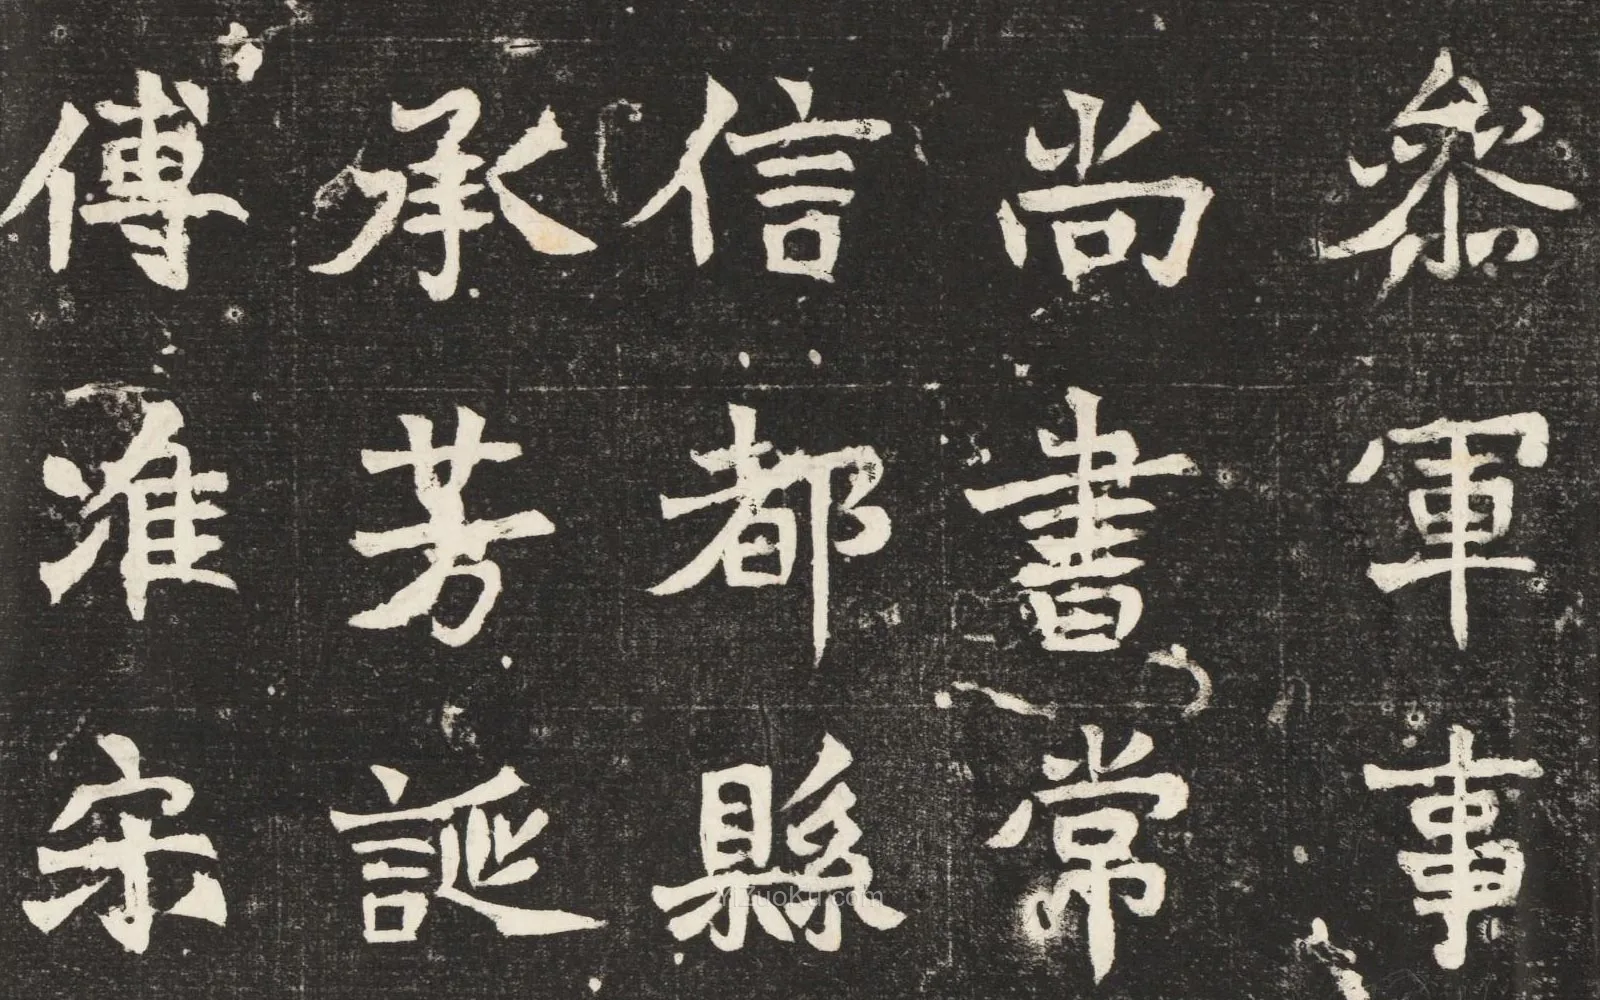 叅軍事
尚書常
信都縣
承芳誕
傅准宋
YiZuoKu.com